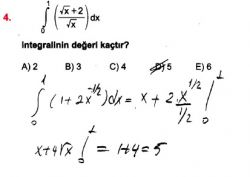 4. ∫₀¹ ((√x + 2)/√x) dx
integralinin değeri kaçtır?
A) 2 B) 3 C) 4 D) 5 E) 6
∫₀¹ (1 + 2x^(-1/2)) dx = x + 2·x^(1/2)/(1/2) |₀¹
x + 4√x |₀¹ = 1+4 = 5